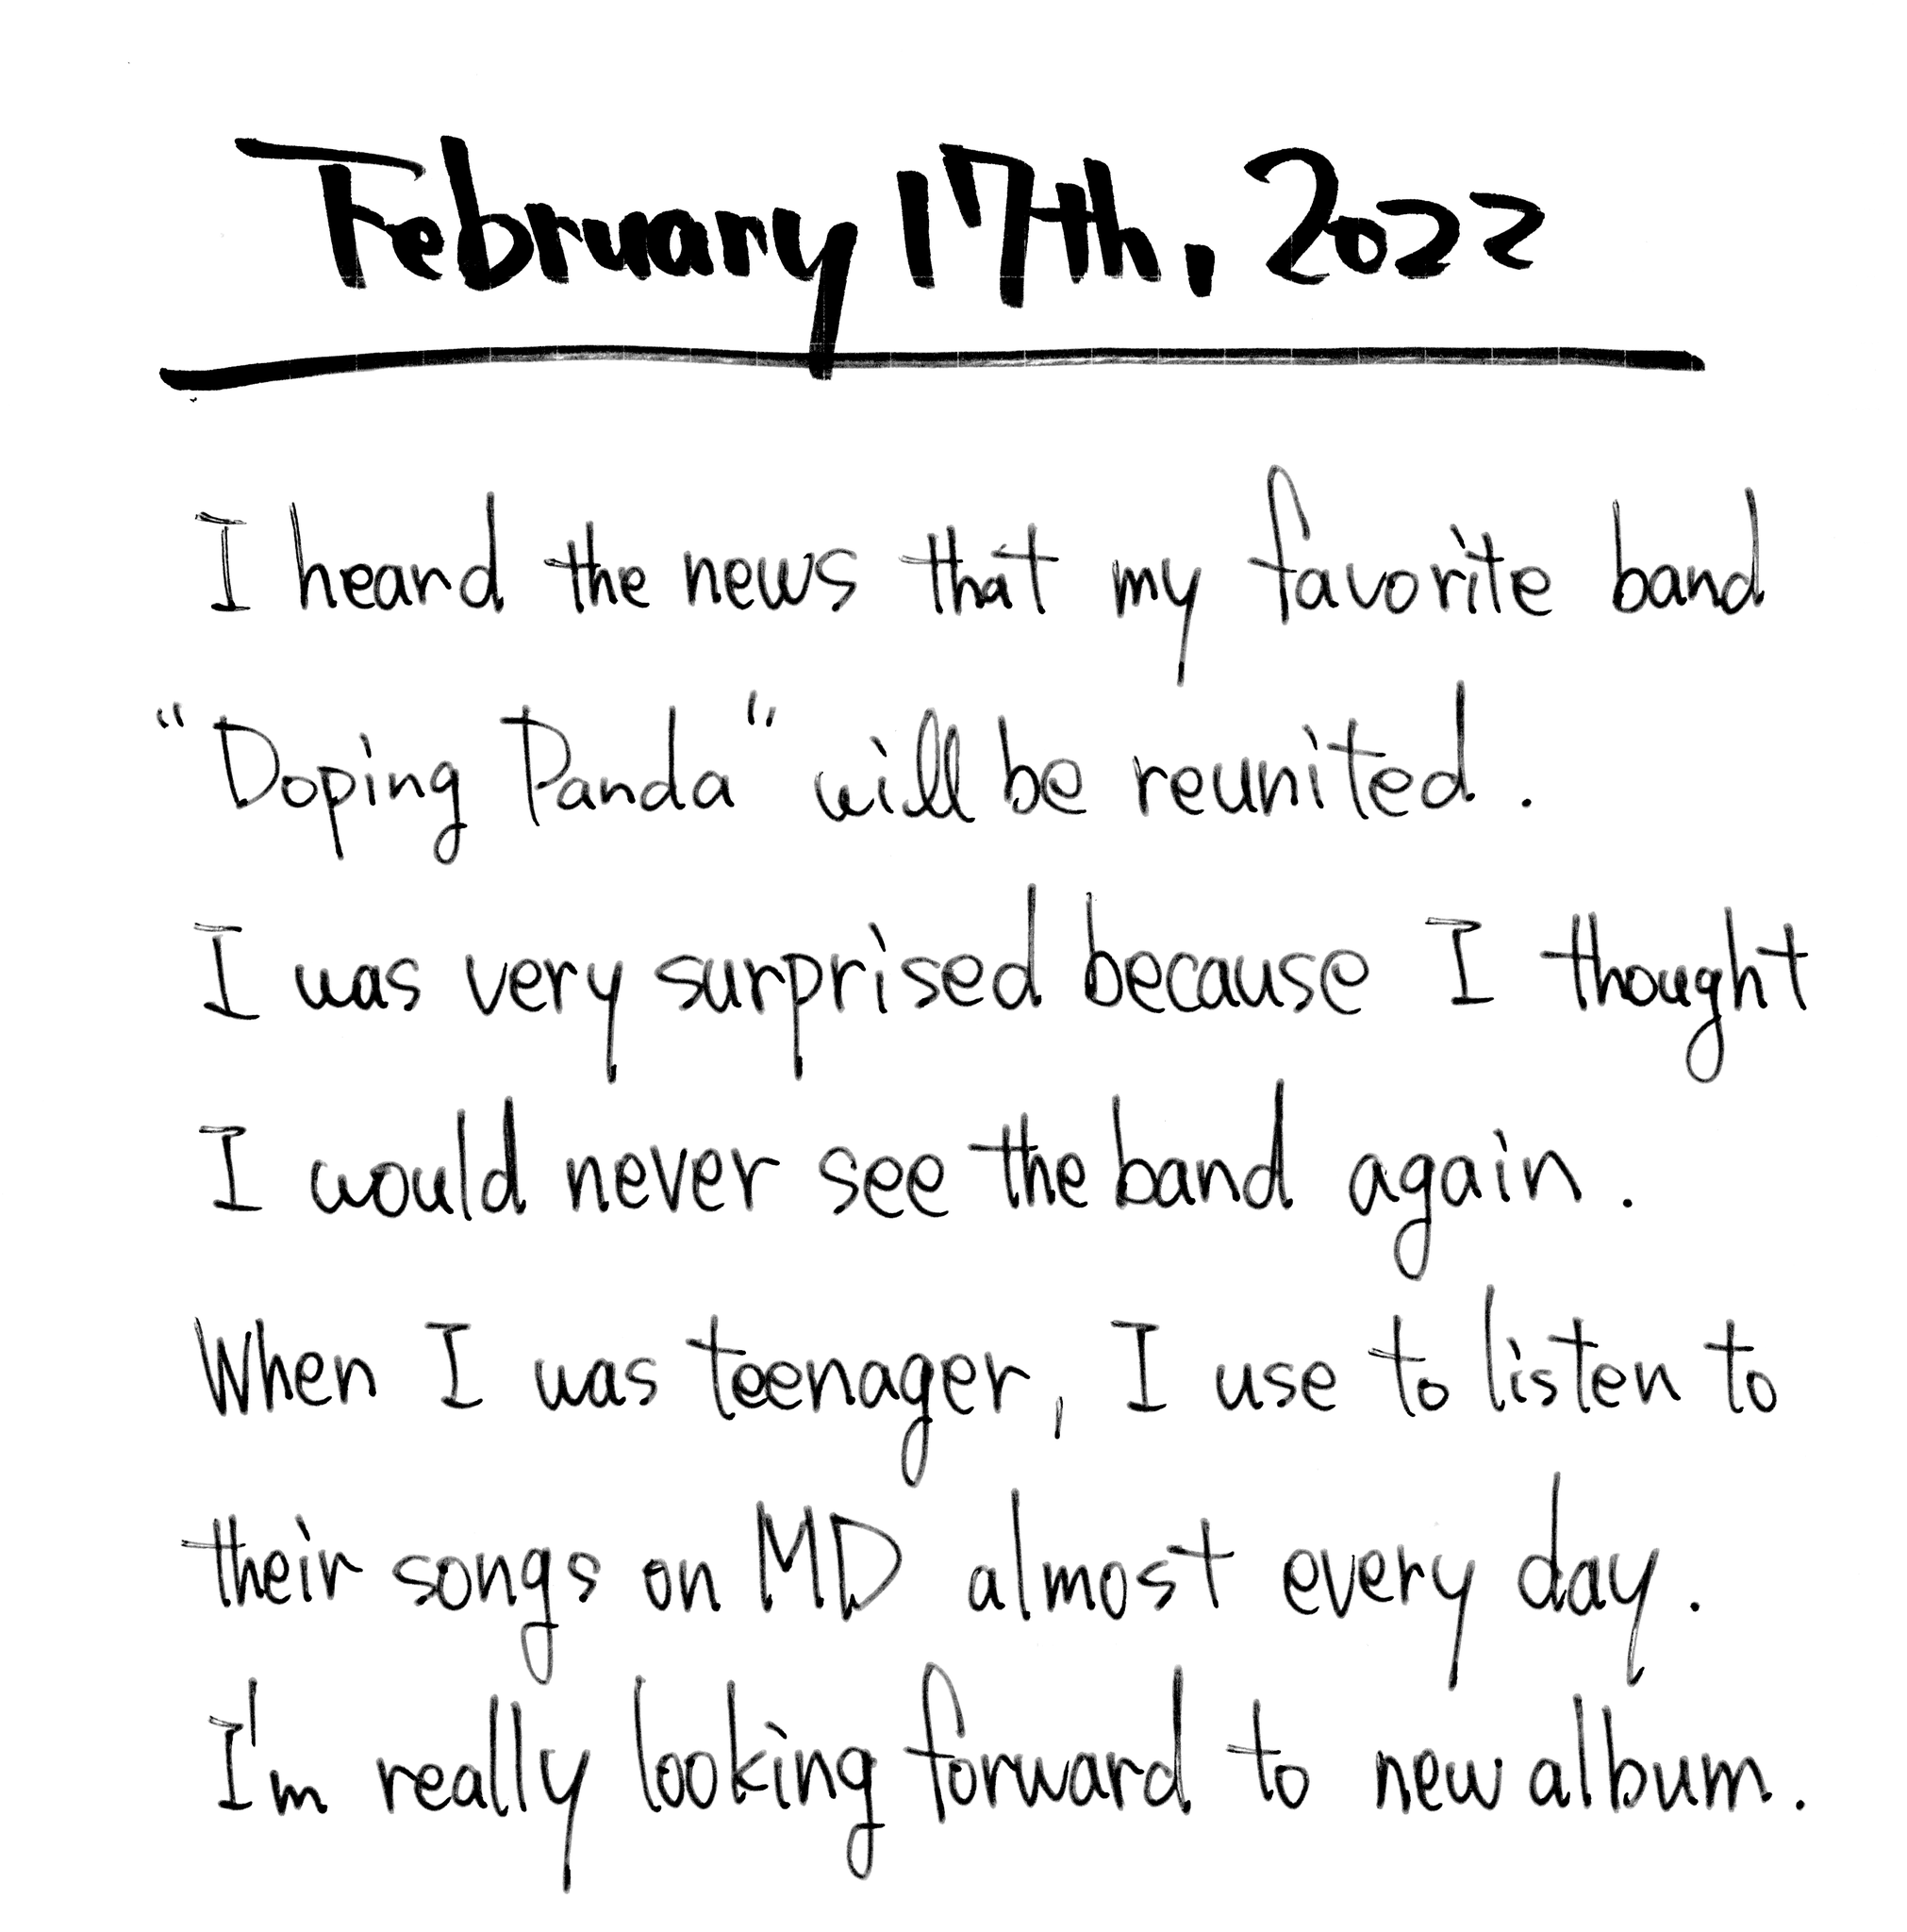 February 17th, 2022
I heard the news that my favorite band
"Doping Panda" will be reunited.
I was very surprised because I thought
I would never see the band again.
When I was teenager, I use to listen to
their songs on MD almost every day.
I'm really looking forward to new album.